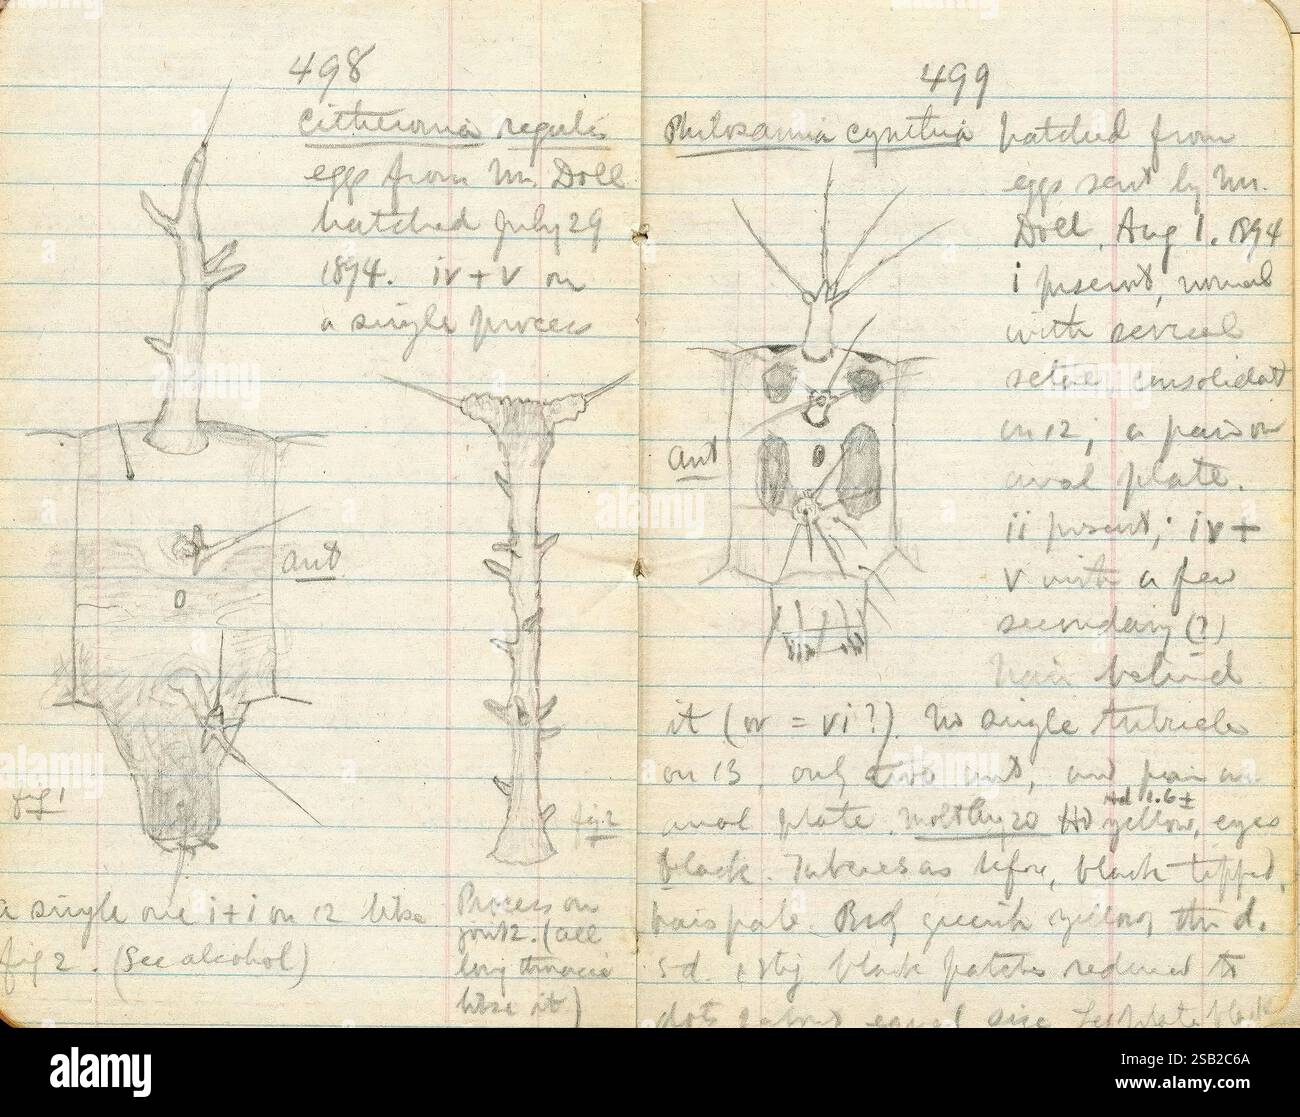 498
Citheronia regalis
eggs from Mr. Doll
hatched July 29
1894. iv + v on
a single process
ant
fig 1
fig. 2
a single one i + i on 12 like
fig 2. (See alcohol)
Process on
joint 2. (all
long thoracic
like it)
499
Philosamia cynthia hatched from
eggs sent by Mr.
Doll, Aug 1. 1894
i present, normal
with several
setae, consolidat
on 12; a pair on
anal plate.
ii present; iv +
v with a few
secondary (?)
hair behind
it (or = vi?). No single tubercle
on 13, only two ant, and pair on
anal plate. Molt Aug 20 Hd yellow, eyes
Hd 1.6 ±
black. Tubercles as before, black tipped,
hairs pale. Body greenish yellow, the d.
s-d. & stig black patches reduced to
dots almost equal size Leg plates black
ant
alamy
Image ID: 2SB2C6A
www.alamy.com